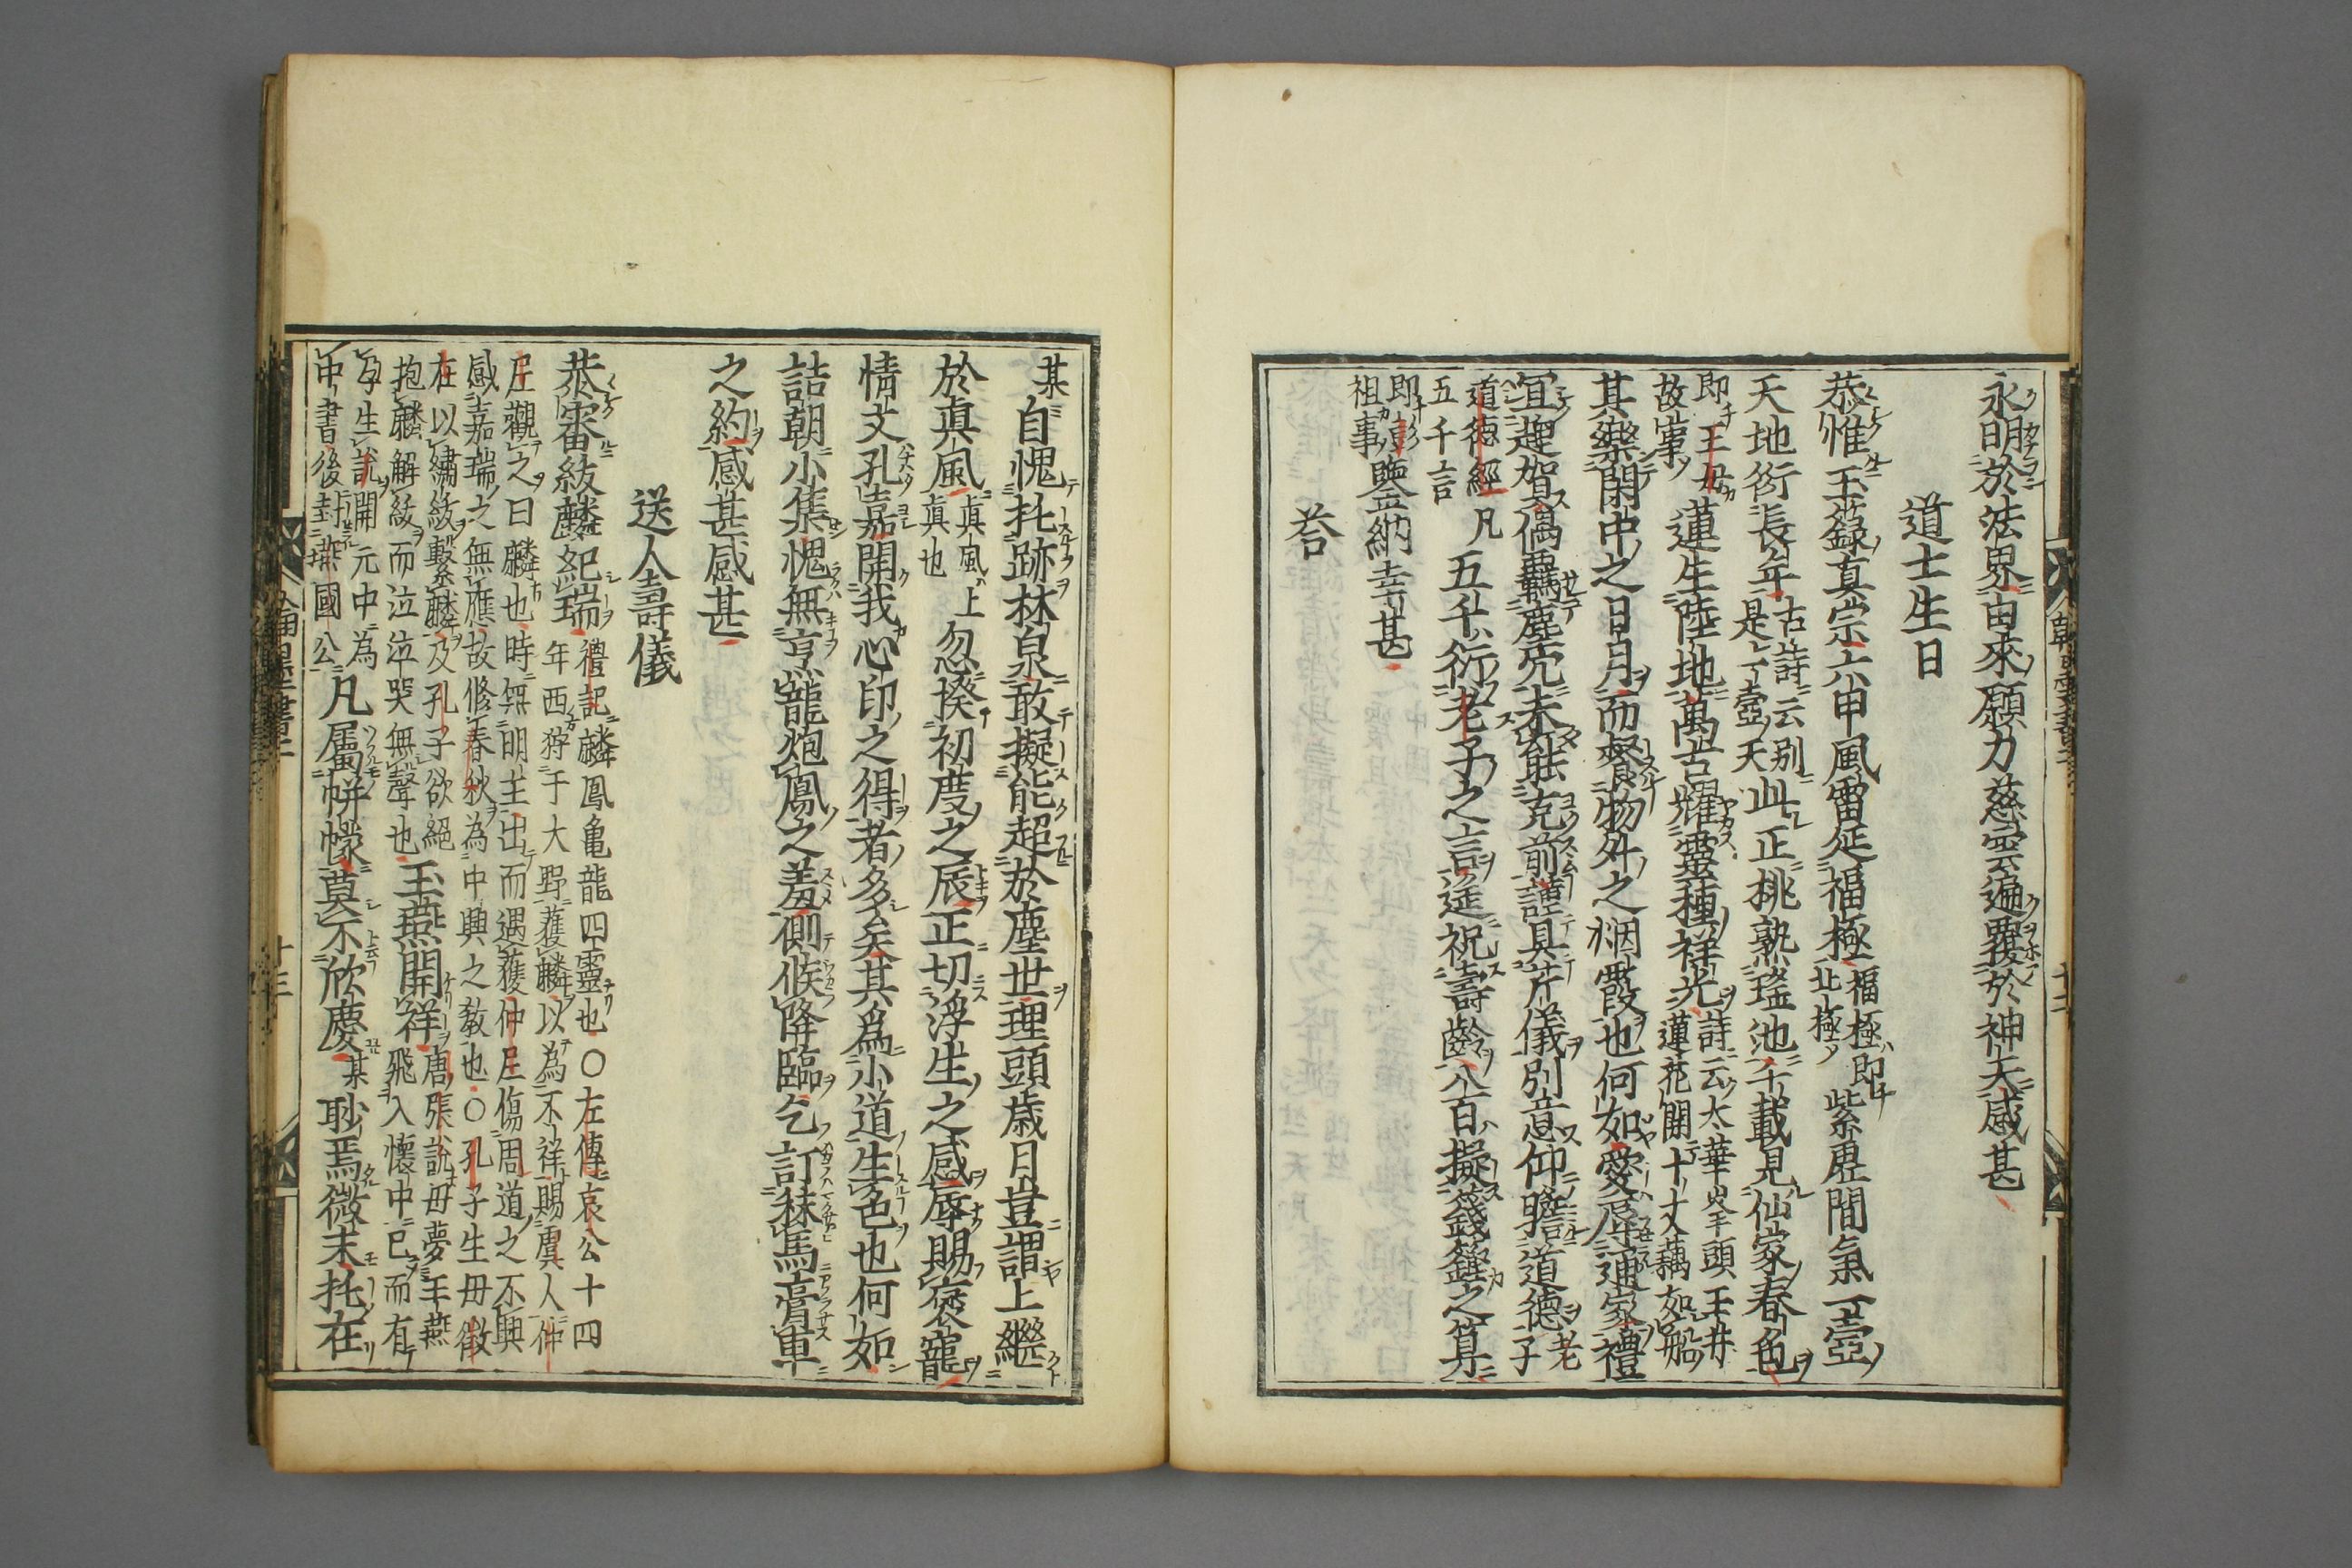 永明於法界由來願力慈雲遍覆於神天感甚
道士生日
恭惟玉籙真宗六甲風雷延福極福極即北極紫虛間氣一壺
天地衍長年古詩云別是一壺天此正桃熟瑤池千載見仙家春色
即王母故事蓮生陸地萬古耀靈種祥光詩云太華峯頭玉井蓮花開十丈藕如船
其樂閑中之日月而餐物外之烟霞也何如愛辱通家禮
宜趨賀偶羈塵冗未能克前謹具芹儀別意仰瞻道德老子
道德經五千言凡五千衍老子之言莚祝壽齡八百擬籛鏗之算
即彭祖事鹽納幸甚
荅
某自愧托跡林泉敢擬能超於塵世理頭歲月豈謂上繼
於真風真風上真也忽揆初度之辰正切浮生之感辱賜褒寵
情文孔嘉開我心印之得者多矣其為小道生色也何如
詰朝小集愧無烹龍炮鳳之羞側候降臨乞訂秣馬膏車
之約感甚感甚
送人壽儀
恭審紱麟紀瑞禮記麟鳳龜龍四靈也○左傳哀公十四
年西狩于大野獲麟以為不祥賜虞人仲
尼觀之曰麟也時無明主出而遇獲仲尼傷周道之不興
感嘉瑞之無應故修春秋為中興之教也○孔子生毋徵
在以繡紱繫麟及孔子欲絕
抱麟解紱而泣泣哭無聲也玉燕開祥唐張說母夢玉燕
飛入懷中已而有
孕生說開元中為
中書後封燕國公凡屬帡幪莫不欣慶某耿焉微末托在